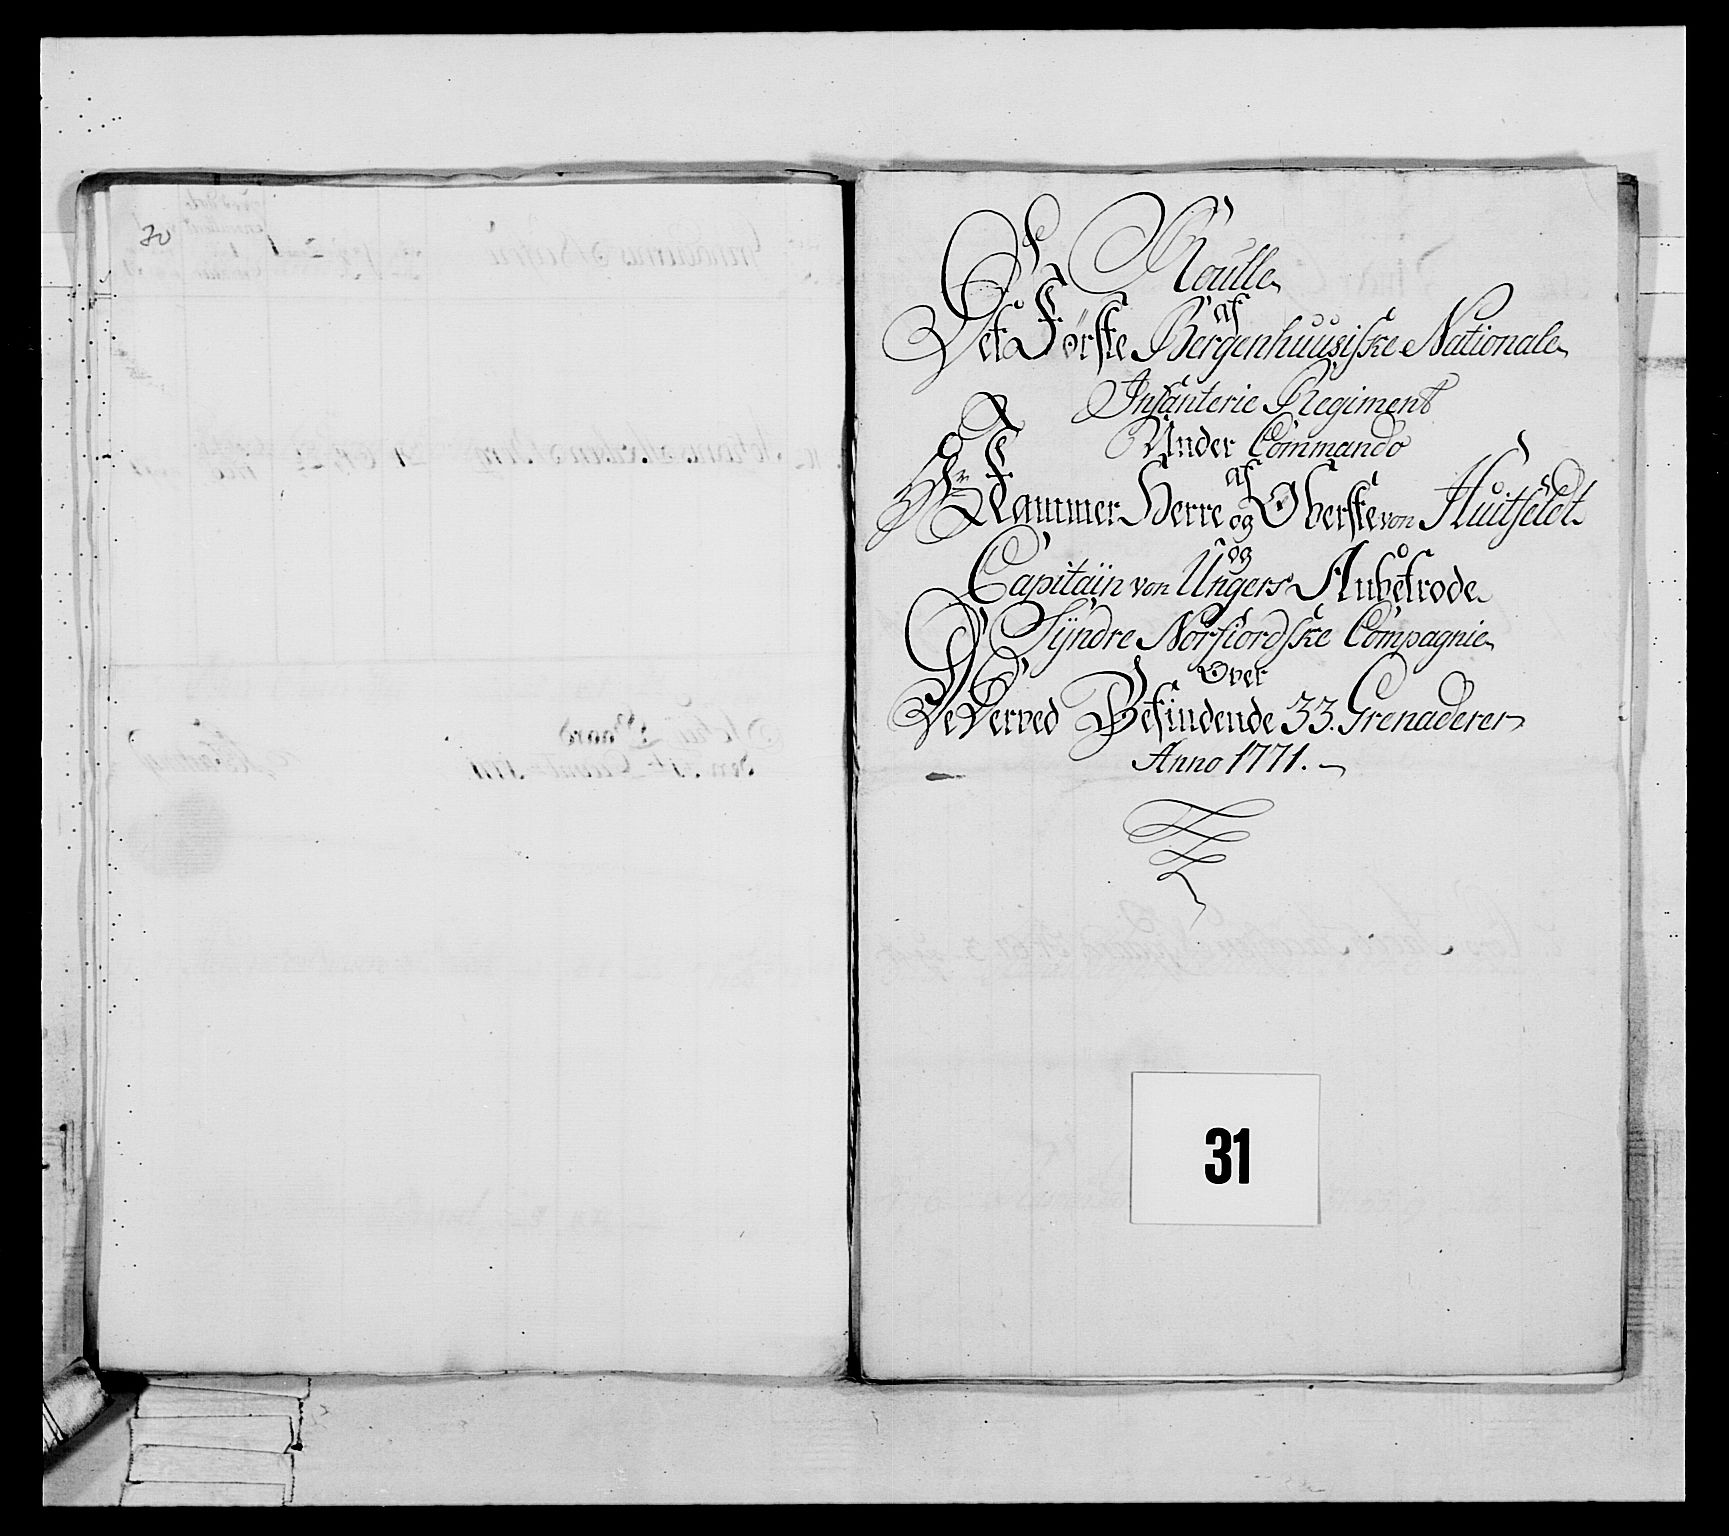 30
Roulle
af
Det Første Bergenhuusiske Nationale
Infanterie Regiment
Under Commando
af
Hr Kammer Herre og Oberste von Huitfeldt
og
Capitaiin von Ungers Anbetrode
Syndre Norfiordske Compagnie
Over
De Derved Befindende 33. Grenaderer
Anno 1771.
31